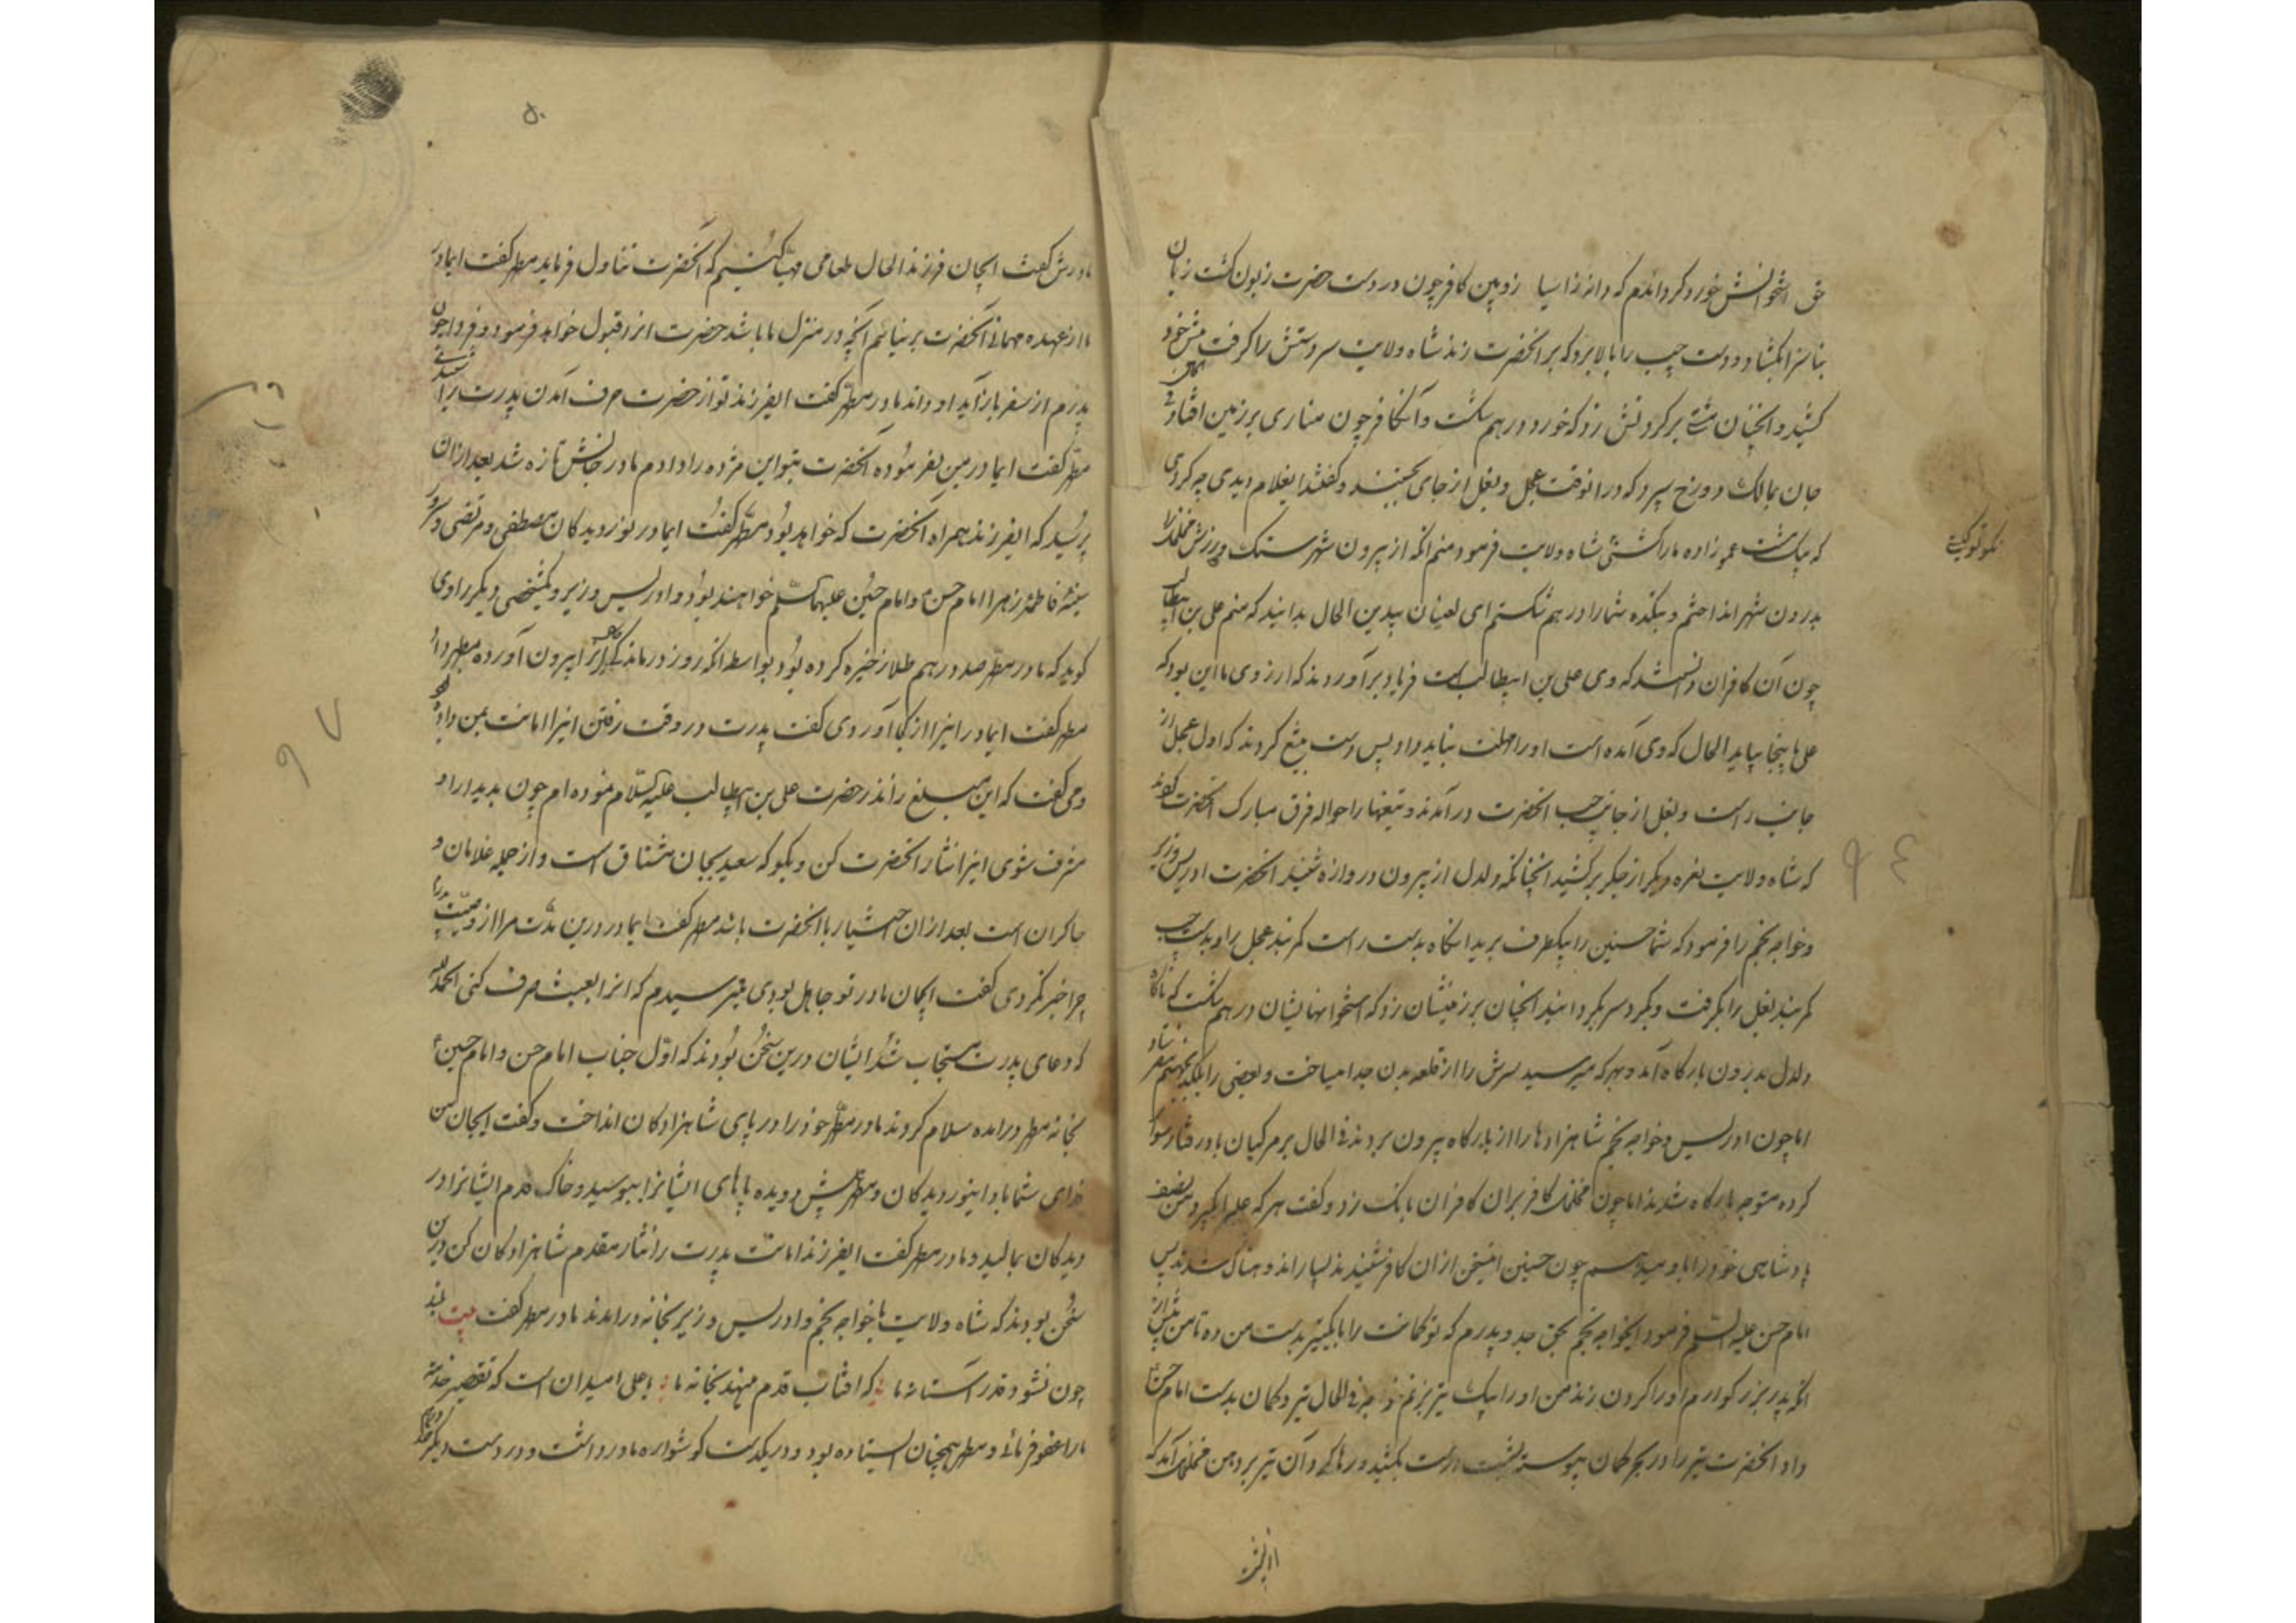 حق استخوانش خورد کرد اندام که دانه را سیا زوبین کافر چون در دست حضرت زبون کشت زبان
بناسزا بکشاد و دست چپ را بالا برد که بر انحضرت زند شاه ولایت سر دستش را کرفت پیش خود
کشید و انچنان مشتی بر کردنش زد که خورد درهم شکست و آن کافر چون مناری بر زمین افتاد
جان بمالک دوزخ سپرد که در انوقت عجل و بغل از جای بجستند و کفتند ایغلام دیدی چه کردی
که بیک مشت عموزاده مارا کشتی شاه ولایت فرمود منم انکه از بیرون شهر سنک
بدرون شهر انداختم و بتکده شما را درهم شکستم ای لعینان بیدین الحال بدانید که منم علی بن ابیطالب
چون آن کافران دانستند که وی علی بن ابیطالب است فریاد برآوردند که ارزوی ما این بود که
علی باینجا بیاید الحال که وی آمده است او را مهلت نباید داد پس دست بتیغ کردند که اول عجل از
جانب راست و بغل از جانب چپ انحضرت درآمدند و تیغها را حواله فرق مبارک انحضرت کردند
که شاه ولایت نعره دیکر از جکر برکشید انچنانکه دلدل از بیرون دروازه شنید انحضرت ادریس وزیر
و خواجه نجم را فرمود که شما حسنین را بیکطرف برید انکاه بدست راست کمربند عجل را و بدست چپ
کمربند بغل را بکرفت و بکرد سر بکردانید انچنان بر زمینشان زد که استخوانهایشان درهم شکست که ناکاه
دلدل بدرون بارکاه آمد و بهرکه میرسید سرش را از قلعه بدن جدا میساخت و بعضی را بلکد بجهنم میفرستاد
اما چون ادریس و خواجه نجم شاهزادها را از بارکاه بیرون بردند فی الحال بر مرکبان بادرفتار سوار
کرده متوجه بارکاه شدند اما چون کافر بران کافران بانک زد و کفت هرکه علی را بکیرد من نصف
پادشاهی خود را باو میدهم چون حسنین اینسخن از ان کافر شنیدند بسیار اندوهناک شدند پس
امام حسن علیه السلم فرمود ایخواجه نجم بحق جد و پدرم که تو کمانت را با یکتیر بدست من ده تا من پیش از
انکه پدر بزرکوارم او را کردن بزند من او را بیک تیر بزنم خواجه فی الحال تیر و کمان بدست امام حسن
داد انحضرت تیر را در بحر کمان پیوسته شست راست بکشید و رها کرد آن تیر بر دهن آمد که
مادرش کفت ایجان فرزند الحال طعامی مهیا کنیم که انحضرت تناول فرماید مطهر کفت ایمادر
ما از عهده مهمانی انحضرت برنیائیم انچه در منزل ما باشد حضرت انرا قبول خواهد فرمود و فردا چون
پدرم از سفر بازآید او داند مادر مطهر کفت ایفرزند تو از حضرت حرف آمدن پدرت را شنیدی
مطهر کفت ایمادر من بفرموده انحضرت بتو این مژده را دادم مادر جانش تازه شد بعد ازان
پرسید که ایفرزند همراه انحضرت که خواهد بود مطهر کفت ایمادر نوردیدکان مصطفی و مرتضی و سرور
سینه فاطمه زهرا امام حسن و امام حسین علیهما السلم خواهند بود و ادریس وزیر و یکشخصی دیکر راوی
کوید که مادر مطهر صد درهم طلا ذخیره کرده بود بواسطه انکه روز درماندکی انرا بیرون آورده بمطهر داد
مطهر کفت ایمادر اینرا از کجا آوردی کفت پدرت در وقت رفتن اینرا امانت بمن داده بود
و می کفت که این مبلغ را نذر حضرت علی بن ابیطالب علیه السلام نموده ام چون بدیدار او
مشرف شوی اینرا نثار انحضرت کن و بکو که سعید بجان مشتاق است و از جمله غلامان و
چاکران است بعد ازان اختیار با انحضرت باشد مطهر کفت ایمادر درین مدت مرا از وصیت پدر
چرا خبر نکردی کفت ایجان مادر تو جاهل بودی میترسیدم که انرا بعبث صرف کنی الحمد لله
که دعای پدرت مستجاب شد ایشان درین سخن بودند که اول جناب امام حسن و امام حسین
بخانه مطهر درامده سلام کردند مادر مطهر خود را در پای شاهزادکان انداخت و کفت ایجان من
فدای شما باد اینوردیدکان و مطهر پیش دویده پاهای ایشانرا ببوسید و خاک قدم ایشانرا در
دیدکان بمالید و مادر مطهر کفت ایفرزند امانت پدرت را نثار مقدم شاهزادکان کن درین
سخن بودند که شاه ولایت با خواجه نجم و ادریس وزیر بخانه درامدند مادر مطهر کفت بیت بلند
چون نشود قدر آستانه ما که افتاب قدم مینهد بخانه ما یا علی امیدان است که تقصیر خدمت
مارا عفو فرمائی و مطهر همچنان ایستاده بود و در یکدست کوشواره مادر داشت و در دست دیکر